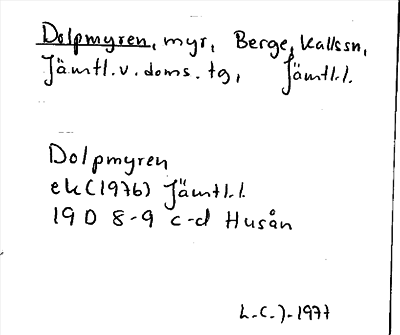 Dolpmyren, myr, Berge, Kallssn,
Jämtl.v.doms.tg, Jämtl.l.
Dolpmyren
ek (1976) Jämtl.l.
19 D 8-9 c-d Husån
L.C.J-1977